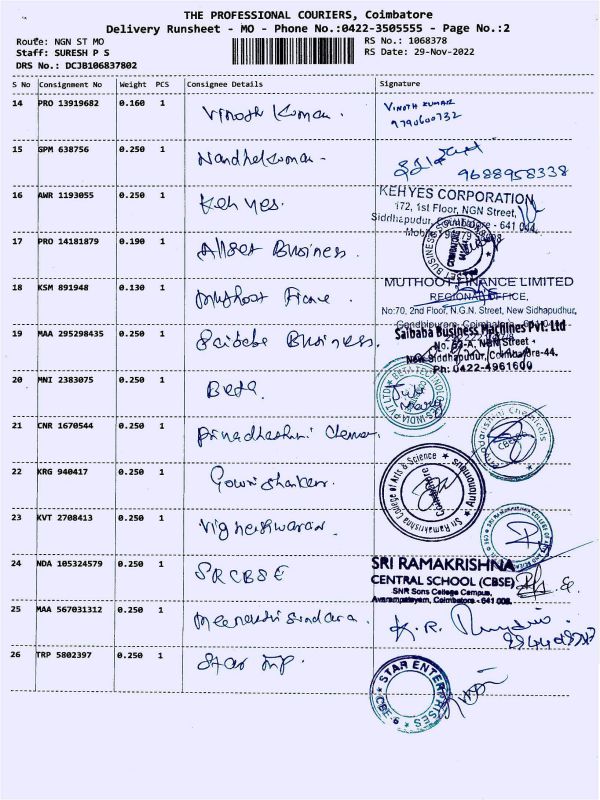 THE PROFESSIONAL COURIERS, Coimbatore
Delivery Runsheet - MO - Phone No.:0422-3505555 - Page No.:2
Route: NGN ST MO
RS No.: 1068378
Staff: SURESH P S
RS Date: 29-Nov-2022
DRS No.: DCJB106837802
S No Consignment No Weight PCS Consignee Details Signature
14 PRO 13919682 0.160 1 Vinoth Kumar. VINOTH KUMAR
9790600732
15 GPM 638756 0.250 1 Nandhakumar - 9688958338
16 AWR 1193055 0.250 1 Keh yes. KEHYES CORPORATION
172, 1st Floor, NGN Street,
Siddhapudur, Coimbatore - 641 044.
17 PRO 14181879 0.190 1 Allset Business.
18 KSM 891948 0.130 1 Muthoot MUTHOOT FINANCE LIMITED
REGIONAL OFFICE,
No:70, 2nd Floor, N.G.N. Street, New Sidhapudhur,
Gandhipuram, Coimbatore - 641044
19 MAA 295298435 0.250 1 Saibaba Business. Saibaba Business Machines Pvt. Ltd
NGN Street -
New Siddhapudur, Coimbatore-44.
Ph: 0422-4961600
20 MNI 2383075 0.250 1 Beta. BETA TECHNOLOGIES INDIA PVT LTD
21 CNR 1670544 0.250 1 Chemicals
22 KRG 940417 0.250 1 Gowrishankar. Sri Ramakrishna College of Arts & Science
Autonomous
Coimbatore
23 KVT 2708413 0.250 1 Vigneshwaran.
24 NDA 105324579 0.250 1 SRCBSE SRI RAMAKRISHNA
CENTRAL SCHOOL (CBSE)
SNR Sons College Campus,
Avarampalayam, Coimbatore - 641 006.
25 MAA 567031312 0.250 1 Meenakshi Sundara. K. R.
26 TRP 5802397 0.250 1 Star STAR ENTERPRISES
CBE-6